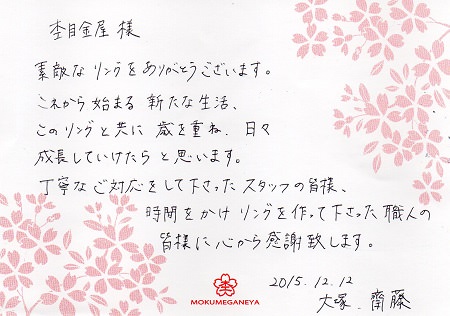 杢目金屋 様
素敵なリングをありがとうございます。
これから始まる 新たな生活、
このリングと共に 歳を重ね、日々
成長していけたらと思います。
丁寧なご対応をして下さったスタッフの皆様、
時間をかけ リングを作って下さった職人の
皆様に心から感謝致します。
2015.12.12
大塚、齋藤
MOKUMEGANEYA